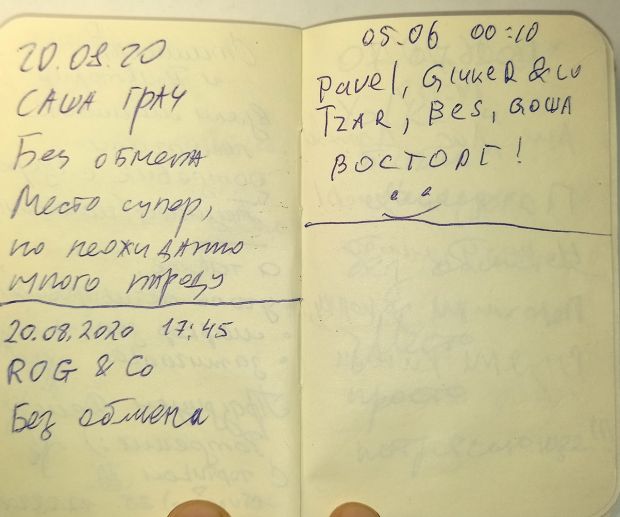 20.08.20
САША ГРАЧ
Без обмена
Место супер,
но неожиданно
много народу
20.08.2020 17:45
ROG & Co
Без обмена
05.06 00:10
Pavel, GinKeR & co
TZAR, Bes, GOШA
ВОСТОРГ!